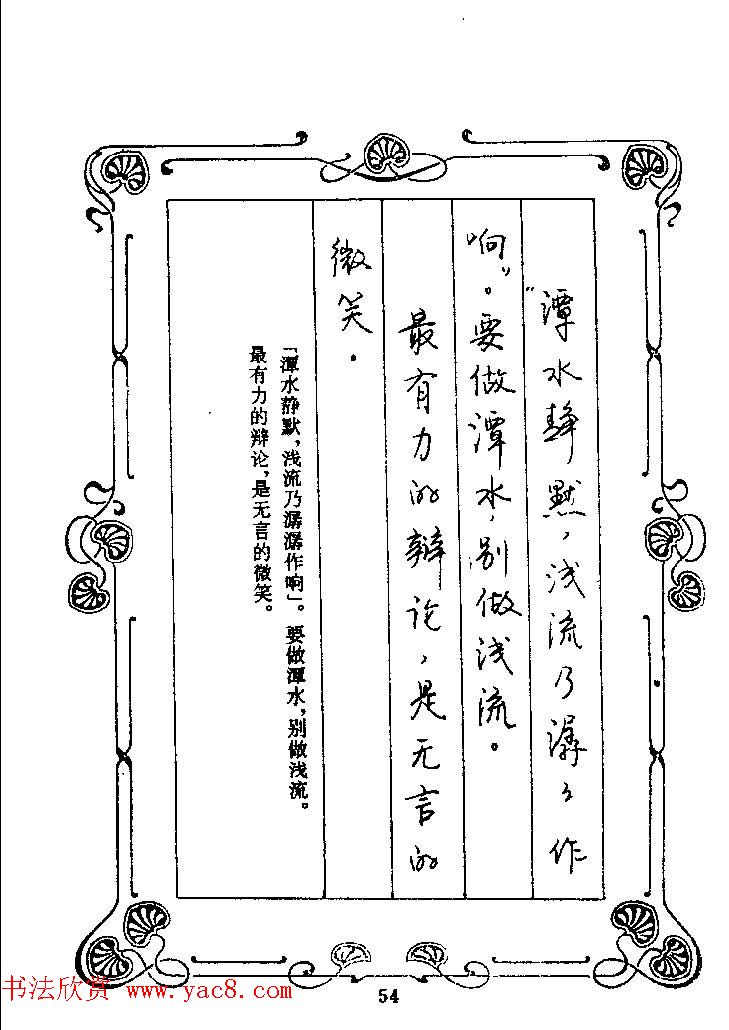 “潭水静默，浅流乃潺々作
响”。要做潭水，别做浅流。
最有力的辩论，是无言的
微笑.
「潭水静默，浅流乃潺潺作响」。要做潭水，别做浅流。
最有力的辩论，是无言的微笑。
54
书法欣赏 www.yac8.com